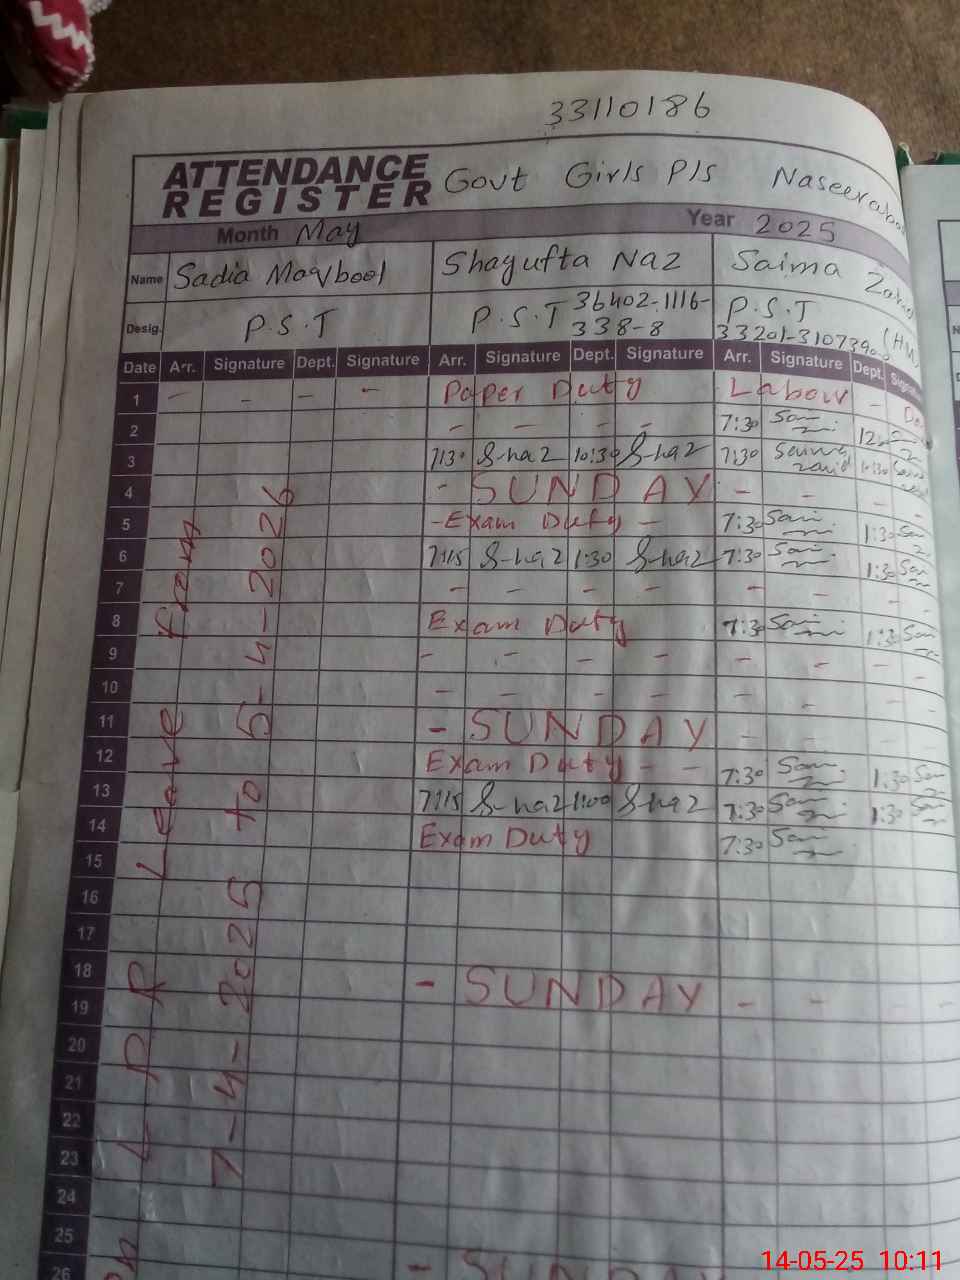 33110186
ATTENDANCE REGISTER Govt Girls P/S
Month May Year 2025
Name Sadia Maqbool Shagufta Naz Saima
Desig. P.S.T P.S.T 36402-1116-338-8 P.S.T (HM)
Date Arr. Signature Dept. Signature Arr. Signature Dept. Signature Arr. Signature Dept.
1 - - - - Paper Duty Labour -
2 - - - - 7:30
3 7:30 S-naz 10:30 S-naz 7:30 Saima 10:30
4 - SUNDAY - - - -
5 - Exam Duty - 7:30 Sai 1:30
6 7:15 S-naz 1:30 S-naz 7:30 Sai 1:30
7 - - - - - - - -
8 Exam Duty 7:30 Sai 1:30
9 - - - - - - - -
10 - - - - - - - -
11 - SUNDAY - - - -
12 Exam Duty - - 7:30 Sai 1:30
13 7:15 S-naz 1:00 S-naz 7:30 Sai 1:30
14 Exam Duty 7:30 Sai
15
16
17
18 - SUNDAY - - - -
19
20
21
22
23
24
25 - SUNDAY
26
on L P R Leave from
7-4-2025 to 5-4-2026
14-05-25 10:11